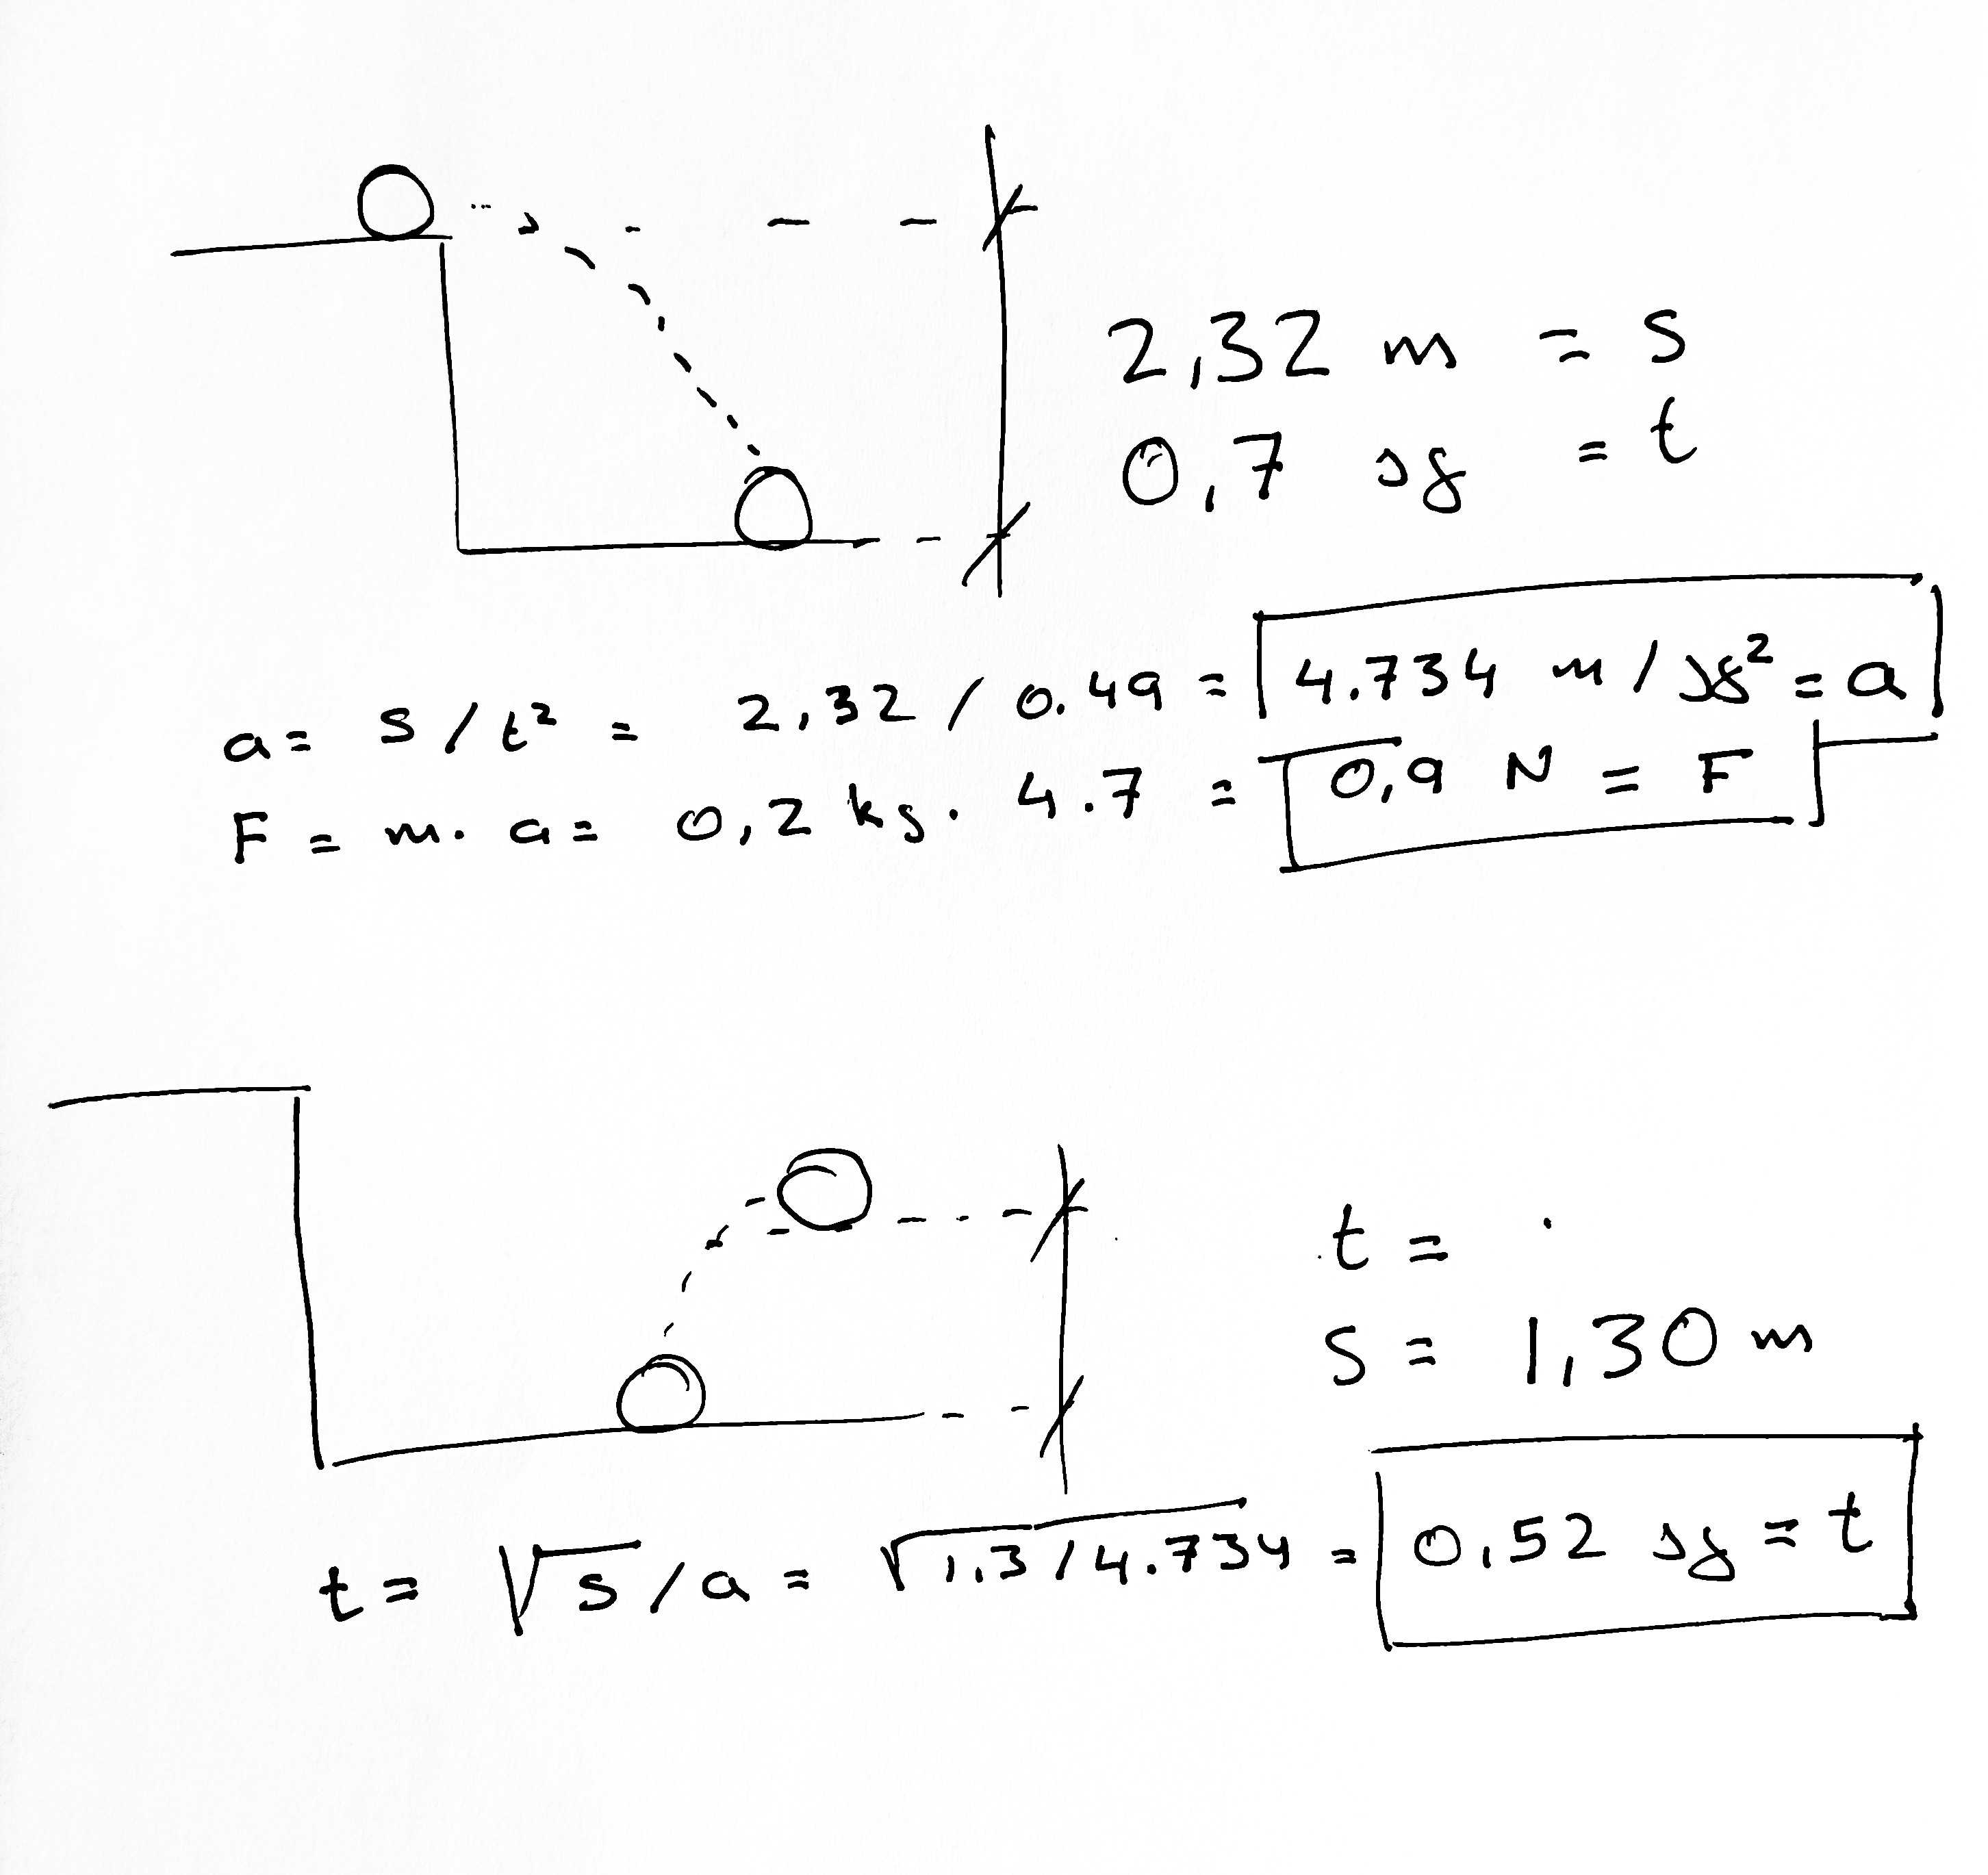 2,32 m = s
0,7 sg = t
a = s / t² = 2,32 / 0.49 = 4.734 m / sg² = a
F = m. a = 0,2 kg. 4.7 = 0,9 N = F
t =
s = 1,30 m
t = √s / a = √1,3 / 4.734 = 0,52 sg = t